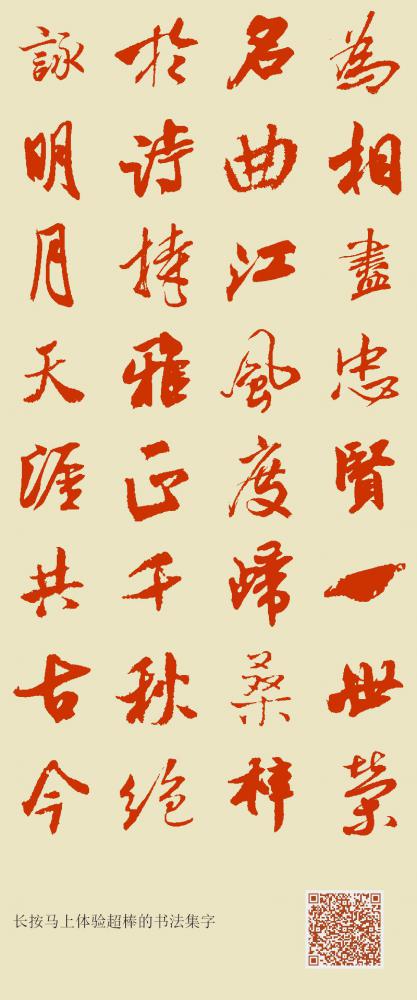 為相盡忠賢一世榮
名曲江風度歸桑梓
於詩捧雅正千秋絕
詠明月天涯共古今
长按马上体验超棒的书法集字